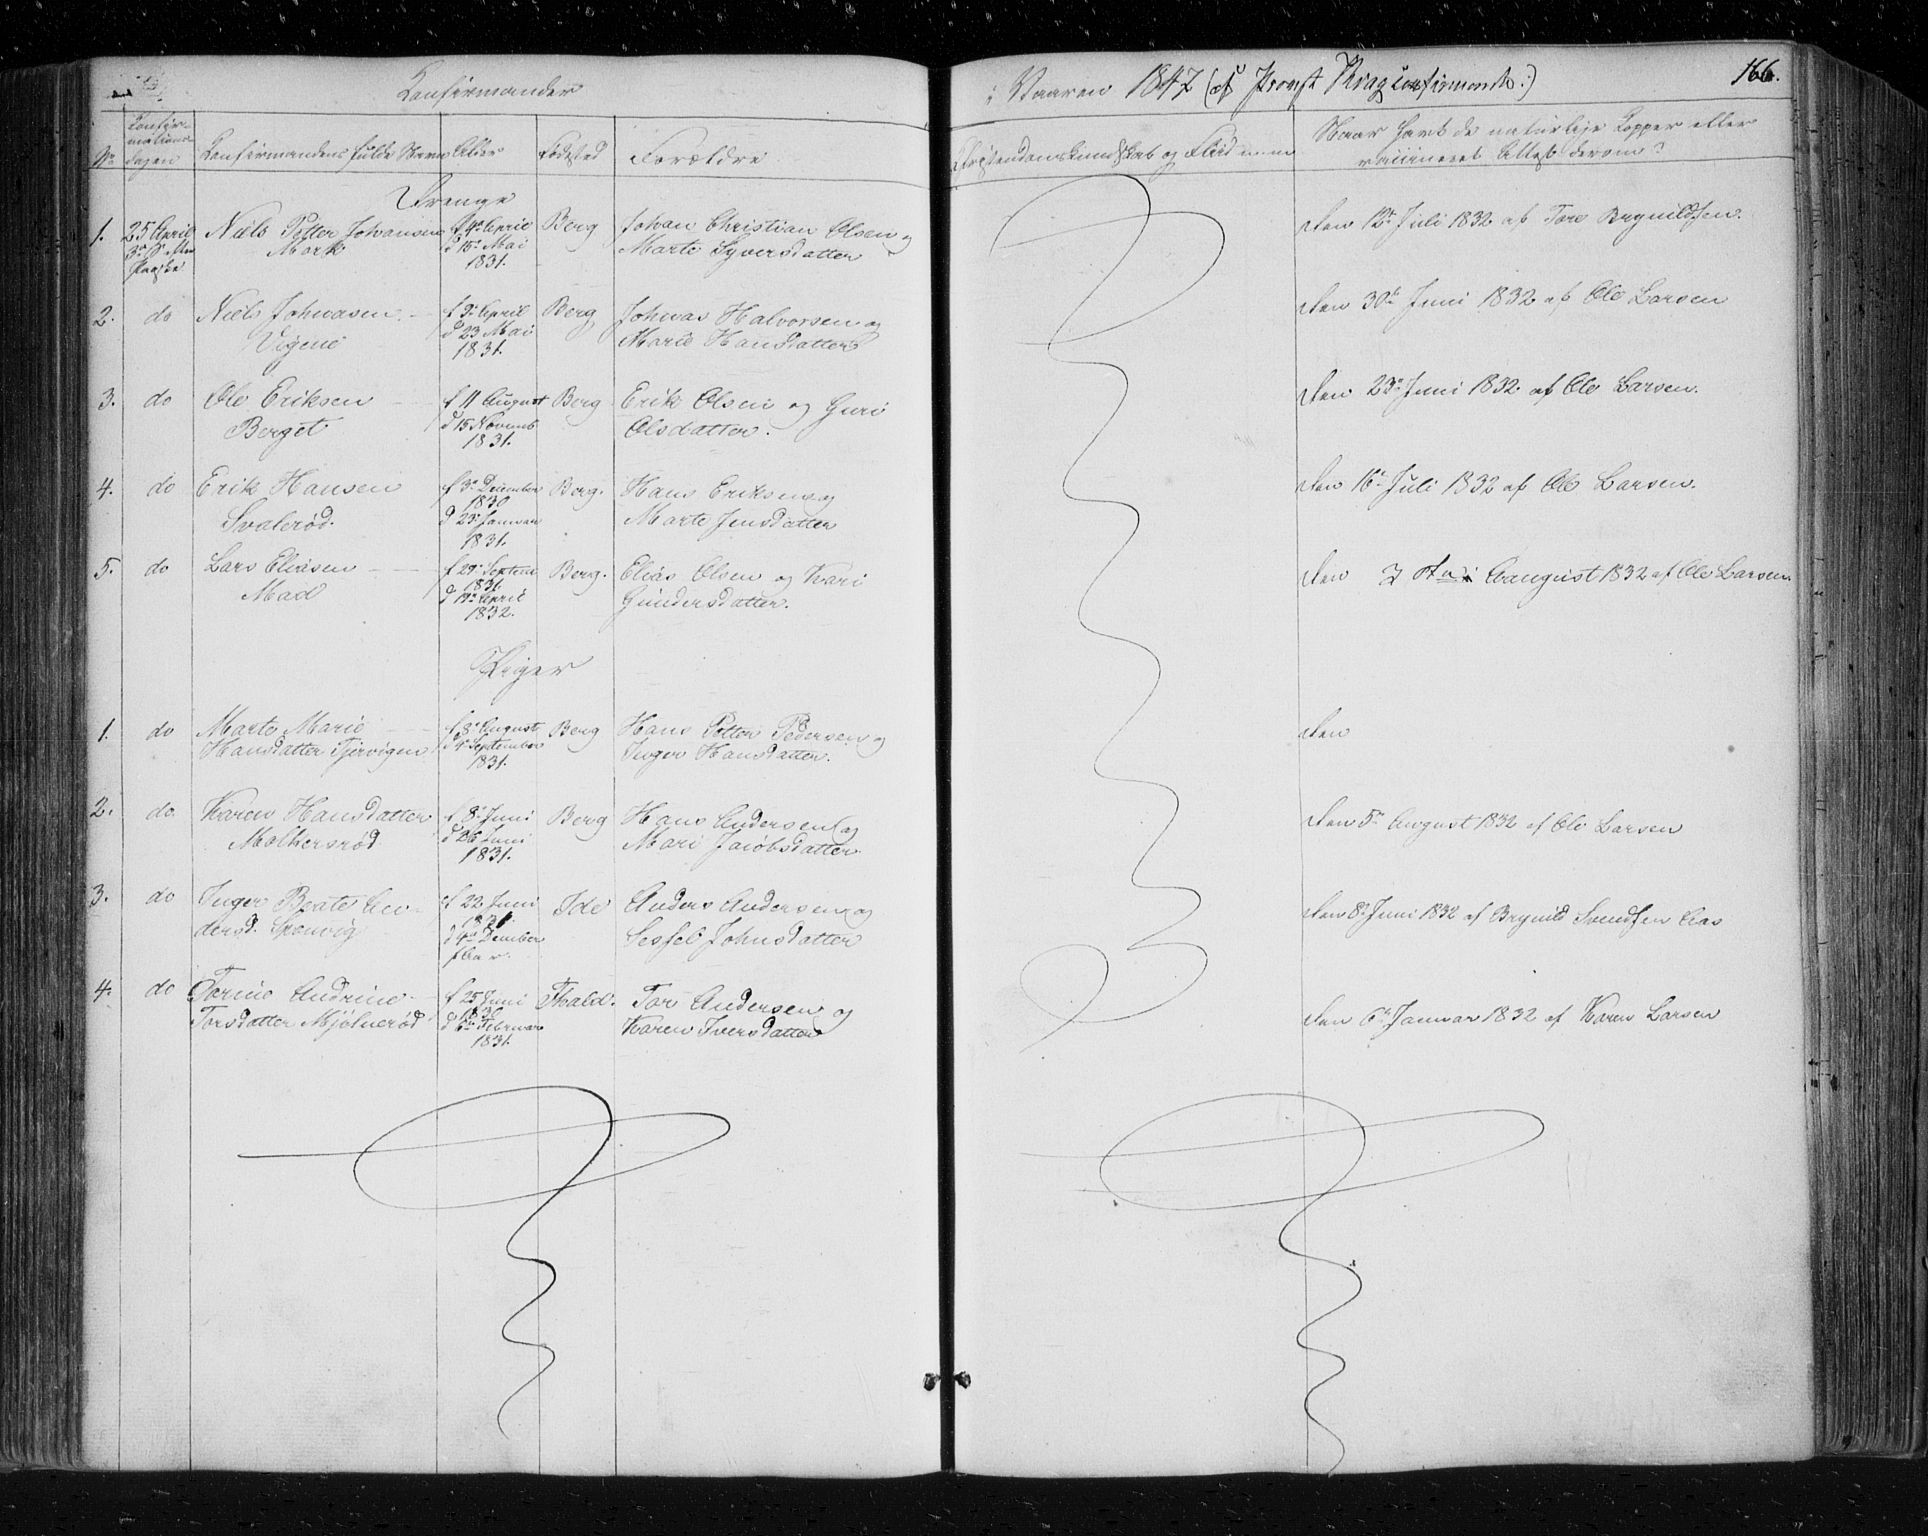 Konfirmander
i Vaaren 1847 (af Provst Krag confirmerede.)
166.
No
Konfir-
mations
dagen
Konfirmandens fulde Navn
Alder
Fødested
Forældre
Christendomskundskab og Flid
Naar havt de naturlige Kopper eller
vaccineret Attest derom?
Drenge
1. 25 April Niels Petter Johansen f 4de April Berg Johan Christian Olsen og
Den 12te Juli 1832 af Tore Brynildsen.
Mork d 15de Mai Marte Syversdatter
Paaske 1831.
2. do Niels Johnasen f 3die April Berg Johnas Halvorsen og
Den 30te Juni 1832 af Ole Larsen
Vigene d 23 Mai Marie Hansdatter
1831.
3. do Ole Eriksen f 11 August Berg Erik Olsen og Guri
Den 23de Juni 1832 af Ole Larsen.
Berget d 15 Novemb Olsdatter.
1831.
4. do Erik Hansen f 3de December Berg. Hans Eriksen og
Den 16de Juli 1832 af Ole Larsen.
Svalerød. 1830 Marte Jensdatter
d 23de Januar
1831.
5. do Lars Eliasen f 29de Septem Berg. Elias Olsen og Kari
Den August 1832 af Ole Larsen.
Mad 1831. Gundersdatter.
d 19de April
1832.
Piger
1. do Marte Marie f 8de August Berg Hans Petter Pedersen og
Den
Hansdatter Tjervigen September Inger Hansdatter.
1831.
2. do Karen Hansdatter f 8de Juni Berg Hans Andersen og
Den 5te August 1832 af Ole Larsen
Molkersrød d 26 Juni Mari Jacobsdatter
1831.
3. do Inger Beate An- f 22 Juni Ide Anders Andersen og
Den 8de Juni 1832 af Brynild Svendsen Aas
dersd. Sponvig 1831. Sessel Johnsdatter
d 4de Dember
s. Aar.
4. do Torine Andrine f 25 Juni Fhald. Tor Andersen og
Den 6te Januar 1832 af Karen Larsen
Torsdatter Mjølnerød 1830 Karen Iversdatter
d 6te Februar
1831.